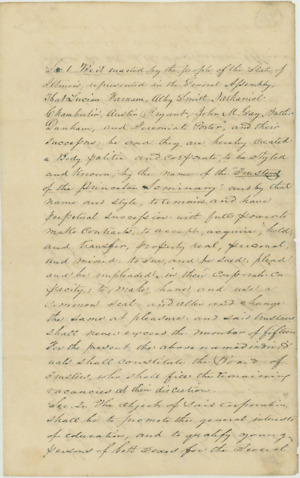 Sec 1. Be it enacted by the people of the State of
Illinois, represented in the General Assembly,
That Lucien Farnam, Alby Smith, Nathaniel
Chamberlin, Austin Bryant, John M. Gay,
Dunham, and Jeremiah Porter, and their
Successors, be and they are hereby created
a Body politic and Corporate, to be styled
and known, by the name of the Trustees
of the Princeton Seminary: and by that
name and style, to remain and have
perpetual succession with full power to
make Contracts, to accept, acquire, hold,
and transfer, property real, personal,
and mixed to sue, and be sued, plead
and be impleaded in their Corporate ca-
pacity, to make, have, and use a
common seal, and alter and change
the same at pleasure, and said trustees
shall never exceed the number of fifteen
For the present the above named individ-
uals shall constitute the Board of
Trustees, who shall fill the remaining
vacancies at their discretion
Sec. 2. The object of said corporation
shall be to promote the general interests
of education, and to qualify young
persons of both sexes for the several